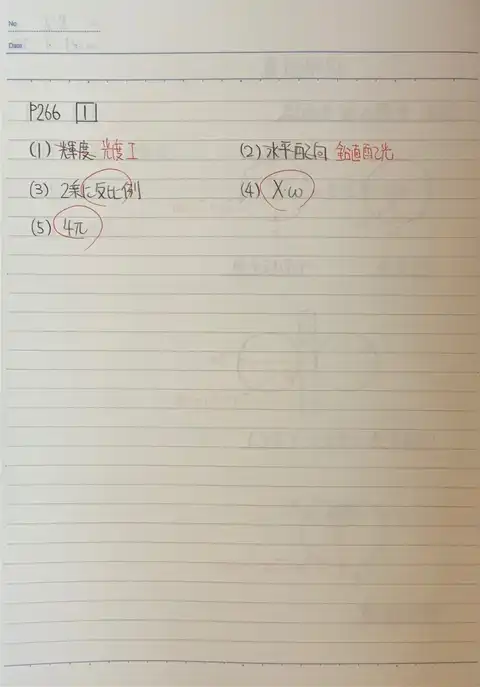 No.
Date
P266 1
(1) 輝度 光度I (2) 水平配向 鉛直配光
(3) 2乗に反比例 (4) X·ω
(5) 4π